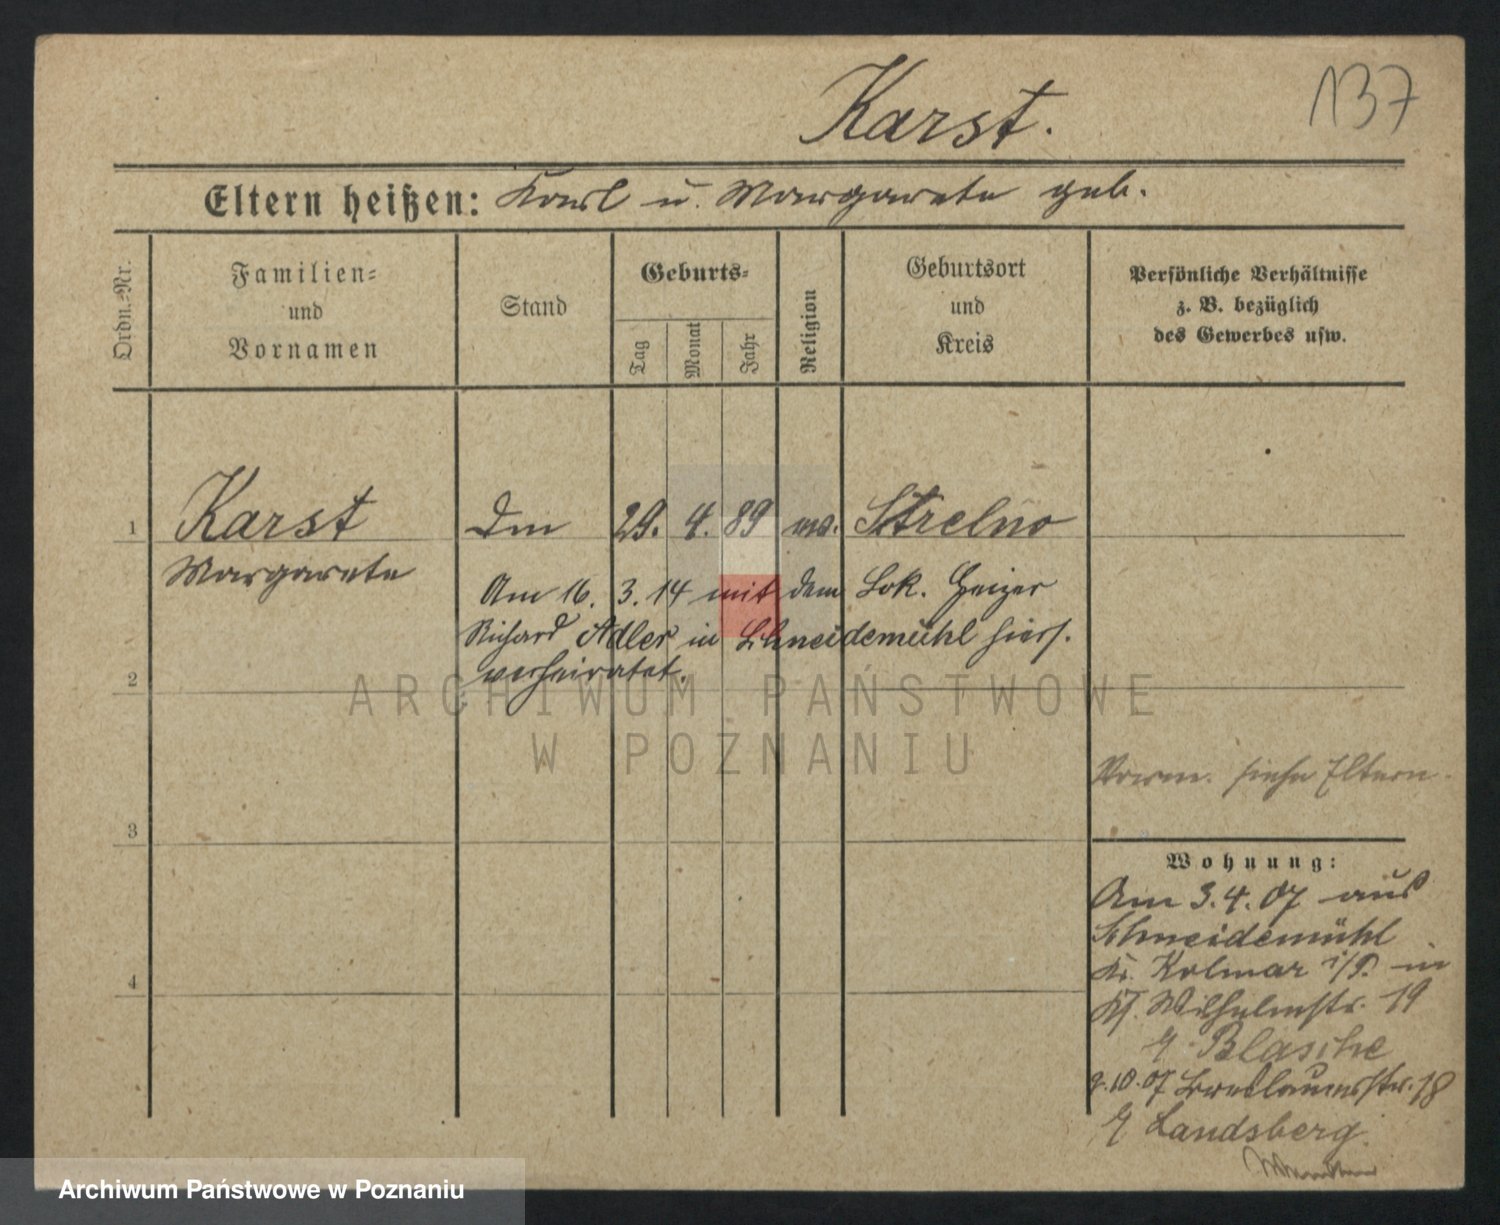 137
Karst.
Eltern heißen: Karl u. Margarete geb.
Ordn.-Nr.
Familien-
und
Vornamen
Stand
Geburts-
Tag
Monat
Jahr
Religion
Geburtsort
und
Kreis
Persönliche Verhältnisse
z. B. bezüglich
des Gewerbes usw.
1 Karst 29. 4. 89 Strelno
Margarete
Am 16. 3. 14 mit dem Lok. Heizer
Richard Adler in Schneidemühl hiers.
verheiratet.
2
ARCHIWUM PAŃSTWOWE
W POZNANIU
siehe Eltern.
3
Wohnung:
Am 3. 4. 07 aus
Schneidemühl
Kr. Kolmar i/P. in
Wilhelmstr. 19
Blasche
4
10. 07 Breslauerstr. 18
Landsberg.
Archiwum Państwowe w Poznaniu